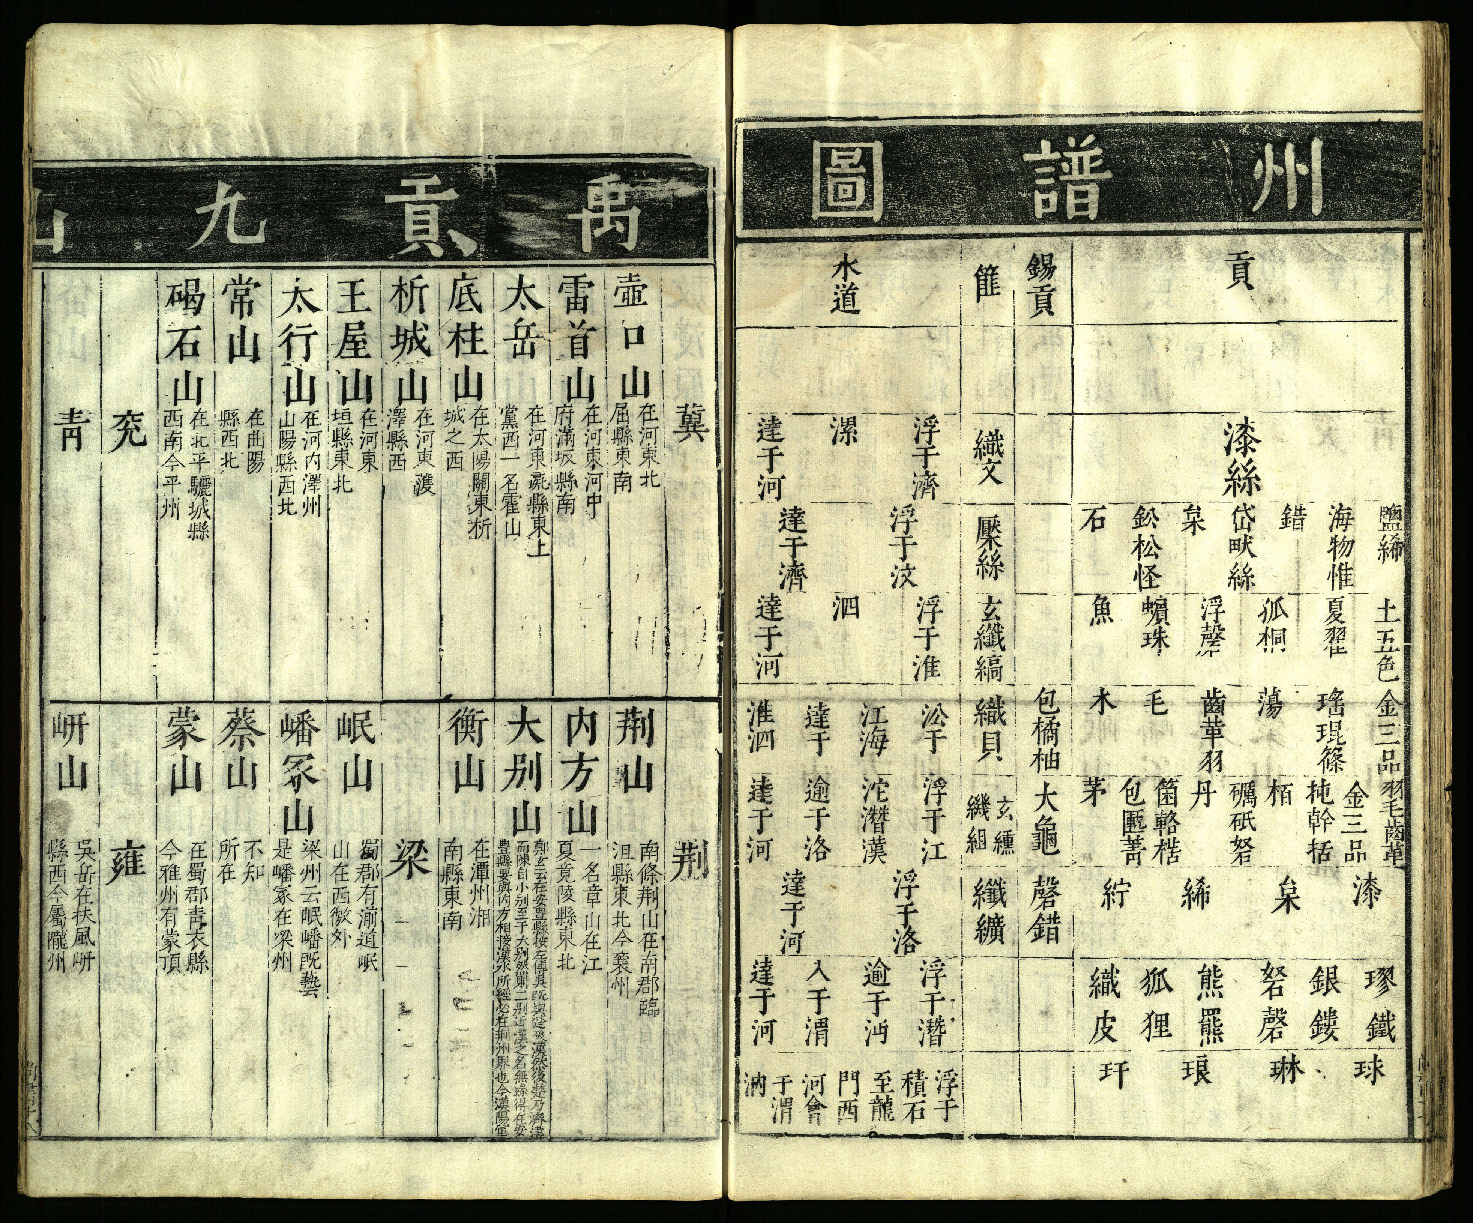 州譜圖
貢
錫貢
篚
水道
漆絲
織文
浮于濟
漯
達于河
鹽絺
海物惟
錯
岱畎絲
枲
鈆松怪
石
檿絲
浮于汶
達于濟
土五色
夏翟
孤桐
浮磬
蠙珠
魚
玄纖縞
浮于淮
泗
達于河
金三品
瑤琨篠
蕩
齒革羽
毛
木
包橘柚
織貝
㳂于
江海
達于
淮泗
羽毛齒革
金三品
杶幹栝
栢
礪砥砮
丹
箘輅楛
包匭菁
茅
大龜
玄纁
璣組
浮于江
沱潛漢
逾于洛
達于河
漆
枲
絺
紵
磬錯
纖纊
浮于洛
達于河
璆鐵
銀鏤
砮磬
熊羆
狐狸
織皮
浮于潛
逾于沔
入于渭
達于河
球
琳
琅
玕
浮于
積石
至龍
門西
河會
于渭
汭
禹貢九山
冀
壺口山
在河東北
屈縣東南
雷首山
在河東河中
府蒲坂縣南
太岳
在河東彘縣東上
黨西一名霍山
底柱山
在太陽關東析
城之西
析城山
在河東濩
澤縣西
王屋山
在河東
垣縣東北
太行山
在河內澤州
山陽縣西北
常山
在曲陽
縣西北
碣石山
在北平驪城縣
西南今平州
兖
青
荆
荆山
南條荆山在南郡臨
沮縣東北今襄州
内方山
一名章山在江
夏竟陵縣東北
大别山
衡山
在潭州湘
南縣東南
梁
岷山
蜀郡有湔道岷
山在西徼外
嶓冢山
梁州云岷嶓既藝
是嶓冢在梁州
蔡山
不知
所在
蒙山
在蜀郡青衣縣
今雅州有蒙頂
雍
岍山
吳岳在扶風岍
縣西今屬隴州